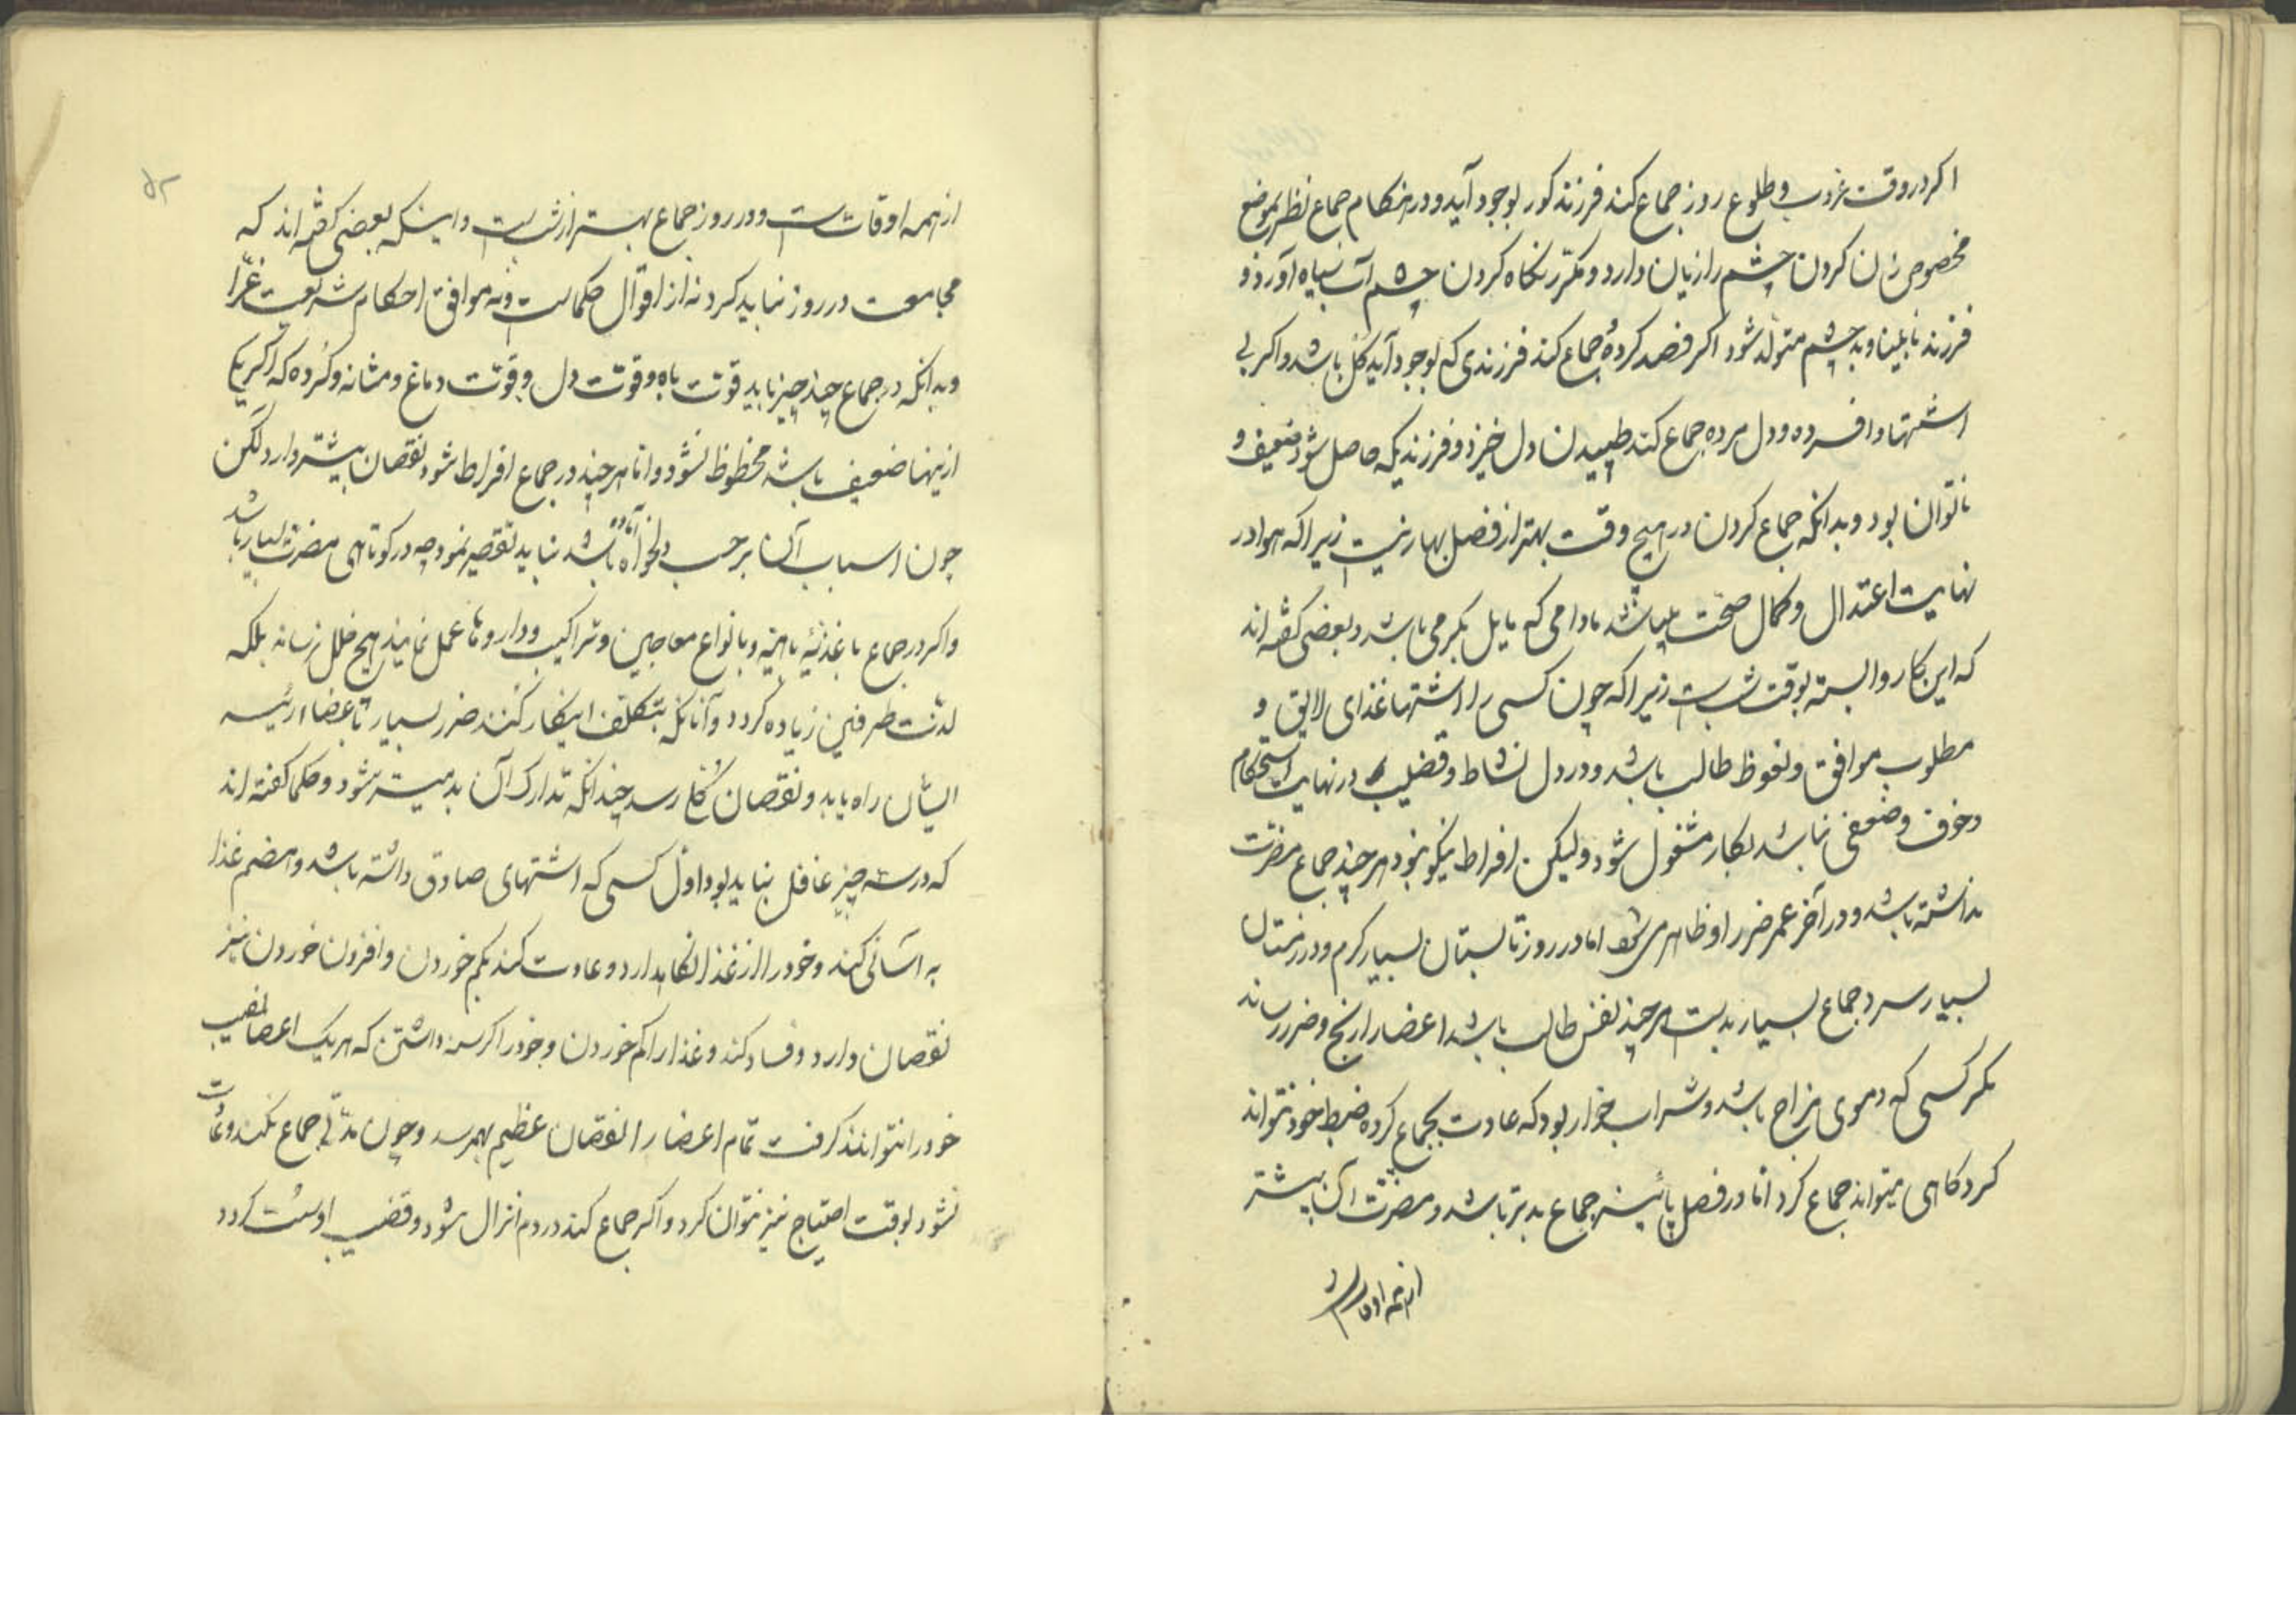 اکر در وقت غروب و طلوع روز جماع کند فرزند کور بوجود آید و در هنکام جماع نظر بموضع
مخصوص زن کردن چشم را زیان دارد و مکرّر نکاه کردن چشم آب سیاه آورد و
فرزند نابینا و بد چشم متولّد شود اکر فصد کرده جماع کند فرزندی که بوجود آید کل باشد و اکر بی
اشتها و افسرده و دل مرده جماع کند طپیدن دل خیزد و فرزندیکه حاصل شود ضعیف و
ناتوان بود و بدانکه جماع کردن در هیچ وقت بهتر از فصل بهار نیست زیرا که هوا در
نهایت اعتدال و کمال صحّت میباشد مادامی که مایل بکرمی باشد و بعضی کفته اند
که این کار وابسته بوقت شبست زیرا که چون کسی را اشتها غذای لایق و
مطلوب موافق و نعوظ طالب باشد و در دل نشاط و قضیب در نهایت استحکام
و خوف و ضعفی نباشد بکار مشغول شود و لیکن افراط نیکو نبود هر چند جماع مضرّت
نداشته باشد و در آخر عمر ضرر او ظاهر می شود اما در روز تابستان بسیار کرم و در زمستان
بسیار سرد جماع بسیار بدست هر چند نفس طالب باشد اعضا را رنج و ضرر رساند
مکر کسی که دموی مزاج باشد و شراب خوار بود که عادت بجماع کرده ضبط خود نتواند
کرد کاهی میتواند جماع کرد امّا در فصل پائیز جماع بدتر باشد و مضرّت آن بیشتر
از همه اوقات
۵۲
از همه اوقاتست و در روز جماع بهتر از شبست و اینکه بعضی کفته اند که
مجامعت در روز نباید کرد نه از اقوال حکماست و نه موافق احکام شریعت غرّا
و بدانکه در جماع چند چیز باید قوّت باه و قوّت دل و قوّت دماغ و مثانه و کرده که اکر یکی
ازینها ضعیف باشد محظوظ نشود و امّا هر چند در جماع افراط شود نقصان بیشتر دارد لکن
چون اسباب آن بر حسب دلخواه آماده باشد نباید تقصیر نمود چه در کوتاهی مضرّت بسیار باشد
و اکر در جماع با غذیّه باهیّه و بانواع معاجین و تراکیب و داروها عمل نمایند هیچ خلل نرساند بلکه
لذّت طرفین زیاده کردد و آنانکه بتکلّف اینکار کنند ضرر بسیار باعضاء رئیسه
ایشان راه یابد و نقصان کلّی رسد چندانکه تدارک آن بد میسّر شود و حکما کفته اند
که در سه چیز غافل نباید بود اوّل کسی که اشتهای صادق داشته باشد و هضم غذا
به آسانی کند و خود را از غذا نکاهدارد و عادت کند بکم خوردن و افزون خوردن نیز
نقصان دارد و فساد کند و غذا را کم خوردن و خود را کرسنه داشتن که هر یک اعضا نصیب
خود را نتوانند کرفت تمام اعضا را نقصان عظیم بهمرسد و چون مدّتی جماع نکند و عادت
نشود بوقت احتیاج نیز نتوان کرد و اکر جماع کند در دم انزال شود و قضیب او سست کردد